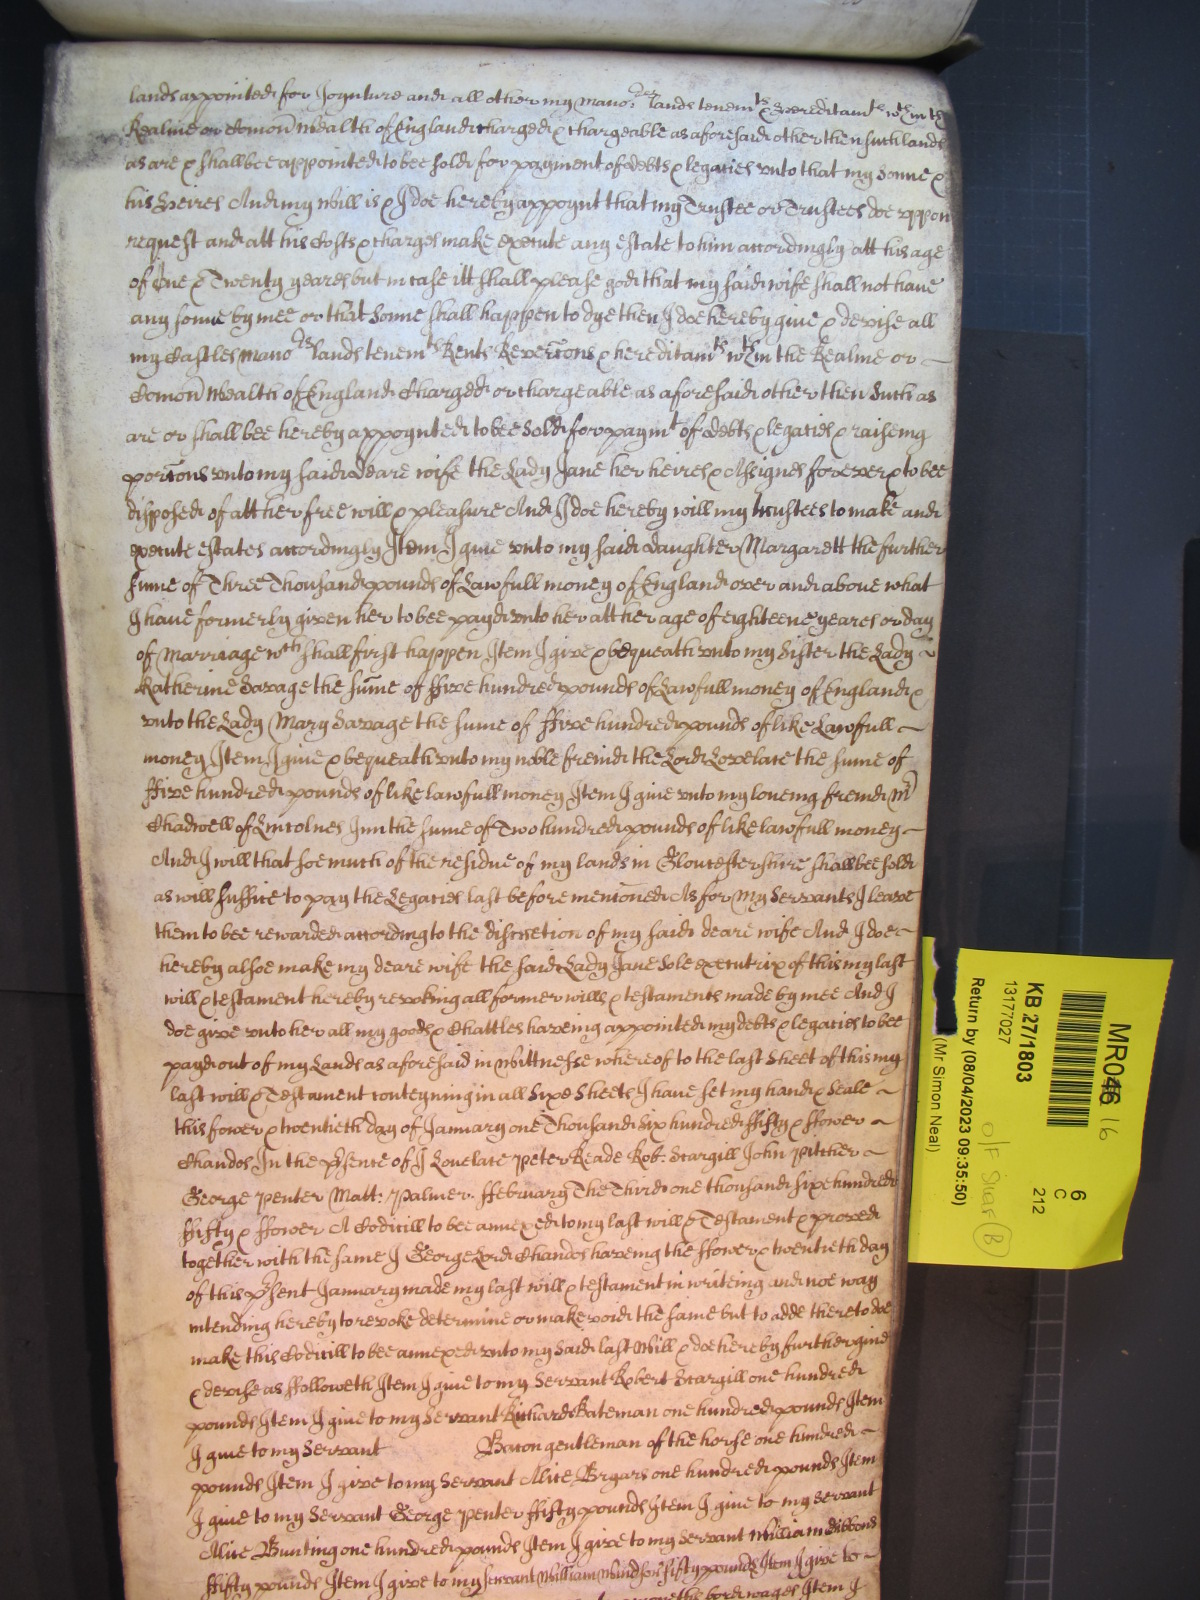 lands appointed for Joynture and all other my mano:rs lands tenemts & hereditamts wthin the
Realme or Comon Wealth of England charged & chargeable as aforesaid other then such lands
as are & shallbee appointed to bee sold for payment of debts & legacies vnto that my Sonne &
his Heires And my Will is & I doe hereby appoynt that my Trustee or Trustees doe vppon
request and att his Costs & charges make execute any estate to him accordingly att his age
of One & Twenty yeares but in case itt shall please god that my said wife shall not haue
any sonne by mee or that Sonne shall happen to dye then I doe hereby giue & devise all
my Castles Manors lands tenemts Rents Revercons & hereditamts wthin the Realme or
Comon Wealth of England Charged or chargeable as aforesaid other then Such as
are or shall bee hereby appoynted to bee Sold for paymt of debts & legacies & raiseing
porcons vnto my said Deare wife the Lady Jane her heires & Assignes for ever & to bee
disposed of att her free will & pleasure And I doe hereby will my trustees to make and
execute estates accordingly Item I giue vnto my said daughter Margarett the further
Sume of Three Thousand pounds of Lawfull money of England over and above what
I haue formerly given her to bee payd vnto her att her age of eighteene yeares or day
of Marriage wch shall first happen Item I give & bequeath vnto my Sister the Lady
Katherine Savage the sume of ffive hundred pounds of Lawfull money of England &
vnto the Lady Mary Savage the sume of ffive hundred pounds of like Lawfull
money Item I giue & bequeath vnto my noble freind the Lord Lovelace the sume of
ffive hundred pounds of like lawfull money Item I giue vnto my loueing freind Mr
Chadwell of Lincolnes Inn the sume of Two hundred pounds of like lawfull money
And I will that soe much of the residue of my lands in Gloucestershire shallbee sold
as will suffice to pay the Legacies last before mencioned As for My Servants I leave
them to bee rewarded according to the discretion of my said deare wife And I doe
hereby alsoe make my deare wife the said Lady Jane Sole executrix of this my last
will & testament hereby revoking all former wills & testaments made by mee And I
doe give vnto her all my goods & Chattles haveing appointed my debts & legacies to bee
payd out of my Lands as aforesaid in Wittnesse whereof to the last Sheet of this my
last will & Testament conteyning in all Sixe Sheets I haue set my hand & Seale
this fower & twentieth day of January one Thousand Six hundred ffifty & ffower
Chandos In the psence of J Lovelace Peter Reade Rob: Scargill John Pitcher
George Penter Matt: Palmer. ffebruary The Third one thousand sixe hundred
ffifty & ffower A Codicill to bee annexed to my last will & Testament & proved
together with the same I George Lord Chandos haveing the ffower & twentieth day
of this psent January made my last will & testament in writeing and noe way
intending hereby to revoke determine or make void the same but to adde thereto doe
make this Codicill to bee annexed vnto my Said last Will & doe hereby further giue
& devise as ffolloweth Item I giue to my Servant Robert Scargill one hundred
pounds Item I giue to my Servant Richard Bateman one hundred pounds Item
I giue to my Servant Bacon gentleman of the horse one hundred
pounds Item I give to my Servant Alice Bryars one hundred pounds Item
I giue to my Servant George Penter ffifty pounds Item I giue to my Servant
Alice Bunting one hundred pounds Item I give to my Servant William Gibbons
ffifty pounds Item I give to my servant William Windsor fifty pounds Item I give to
bord wages Item I
MR046 16
KB 27/1803
13177027
Return by (08/04/2023 09:35:50)
(Mr Simon Neal)
6
C
212
B